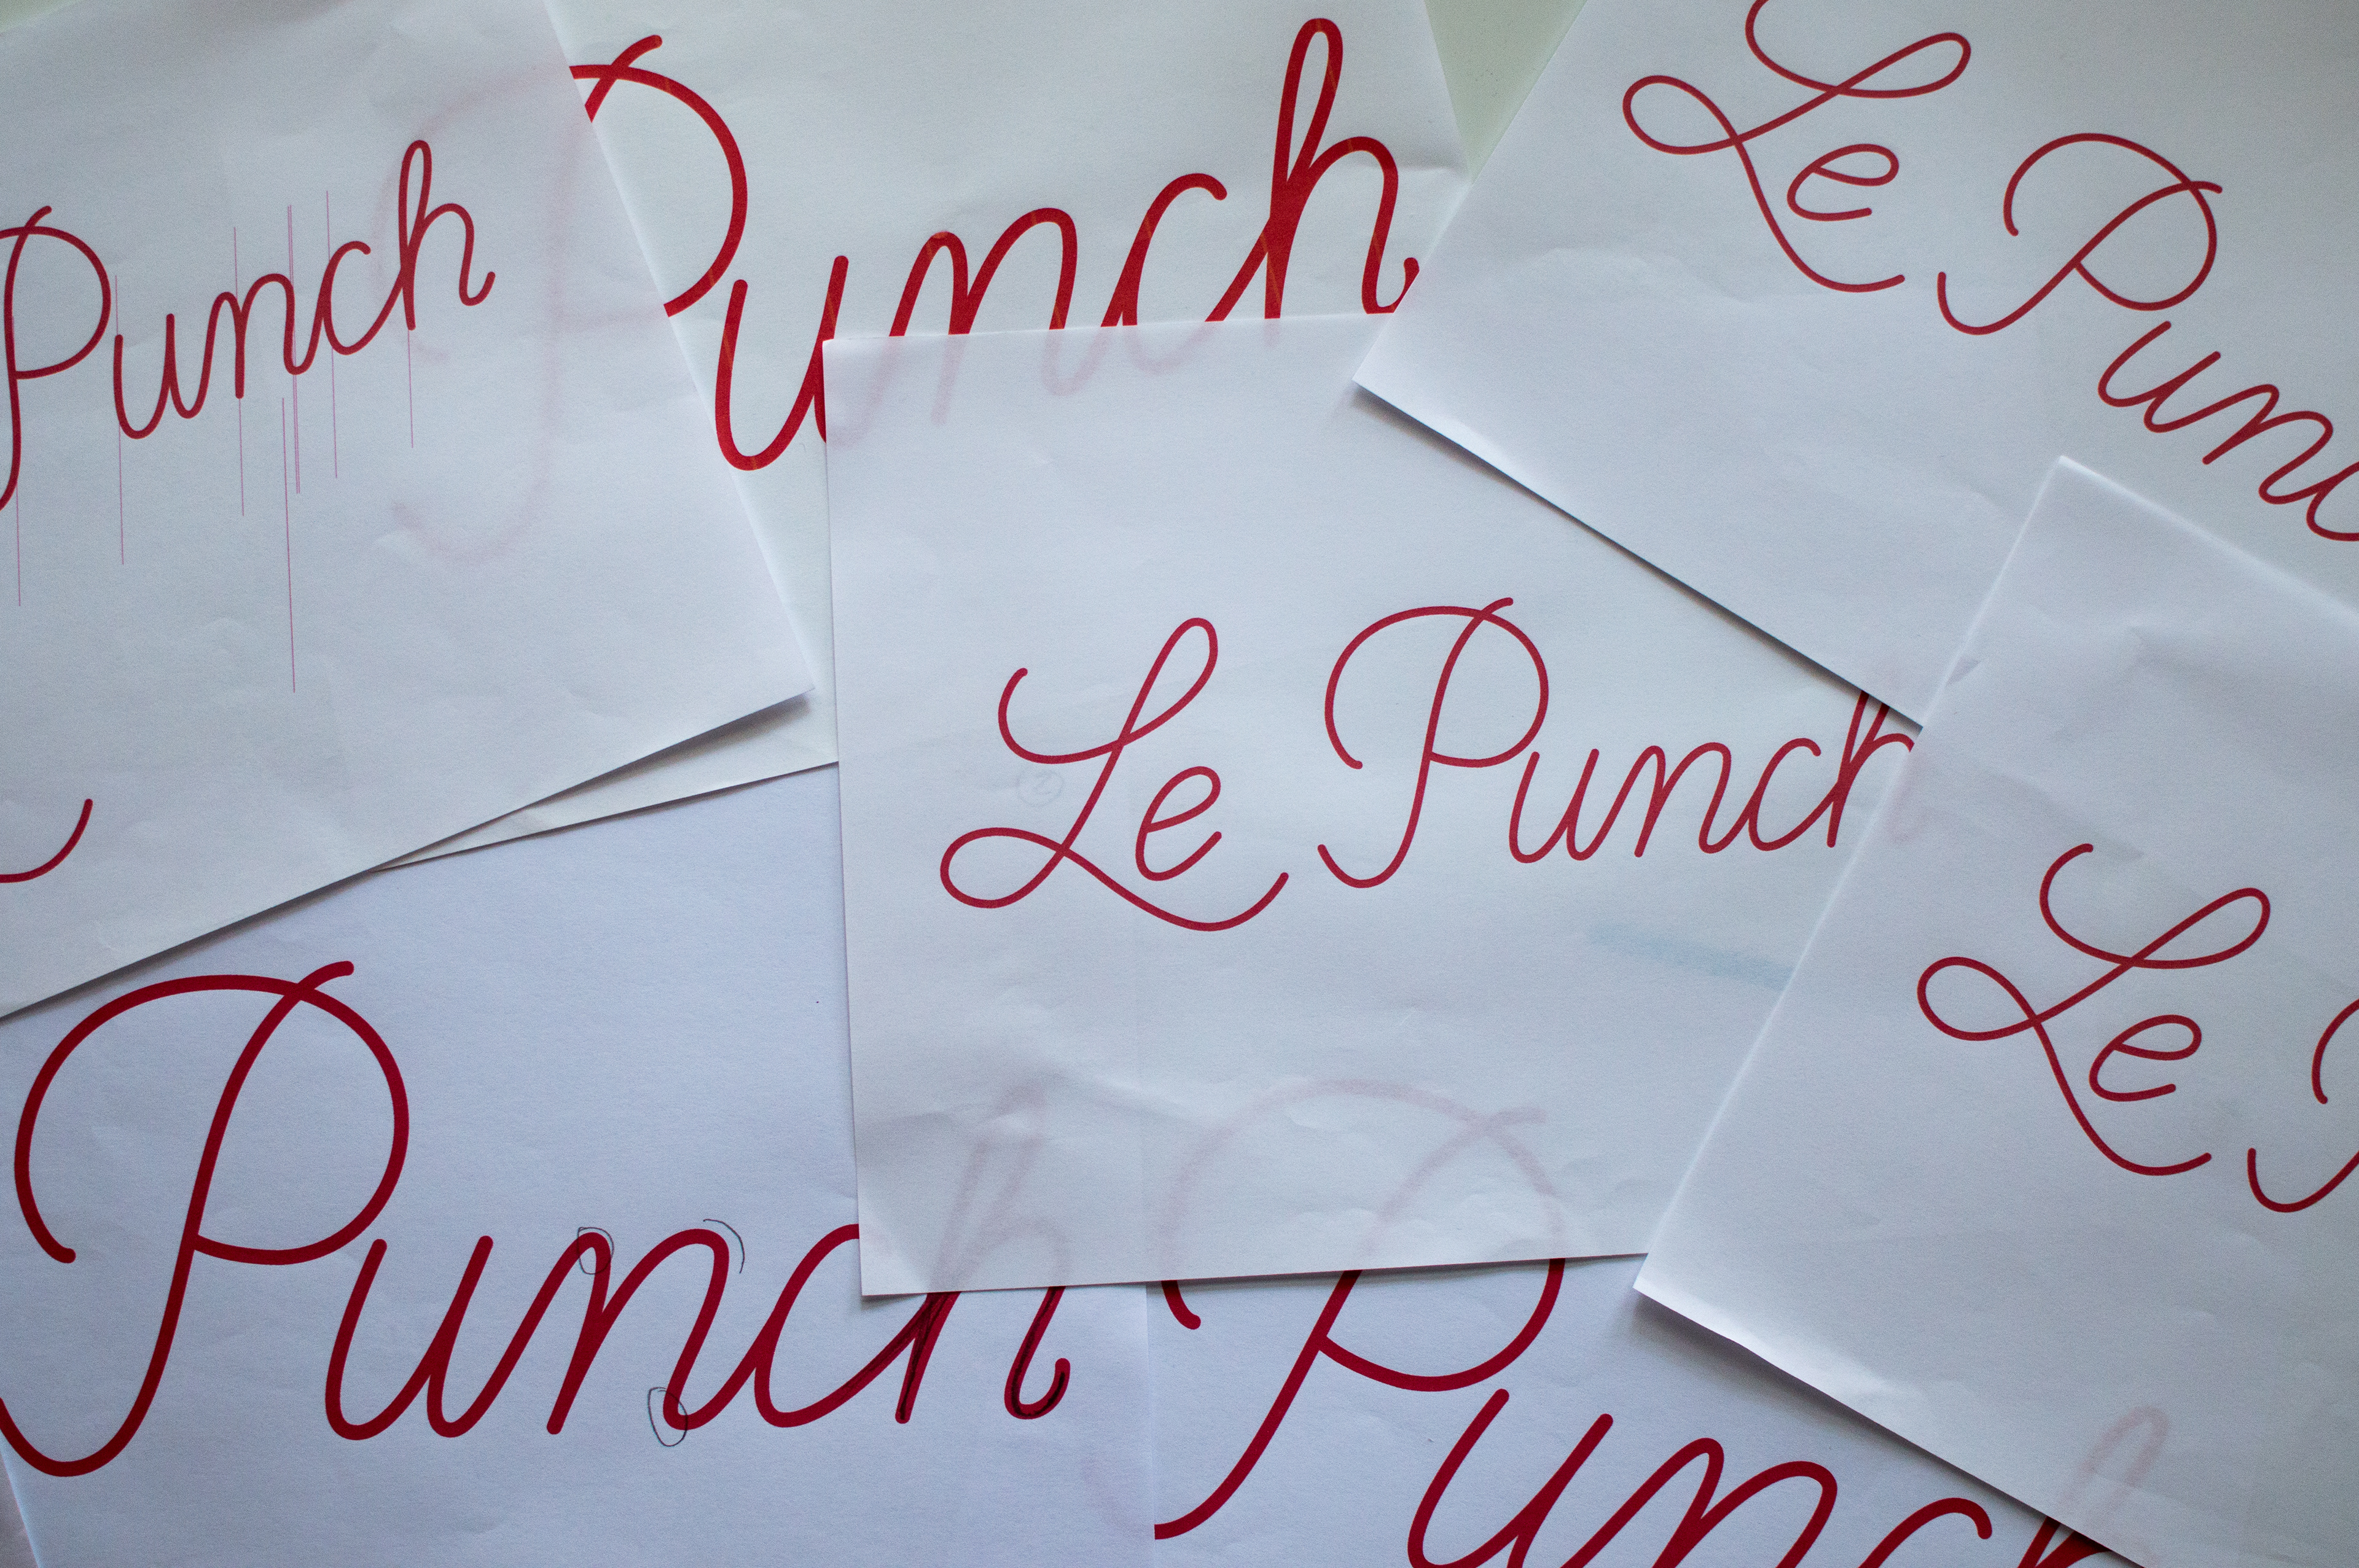 Punch
Punch
Le Punc
Le Punch
Le P
Punch
Punch